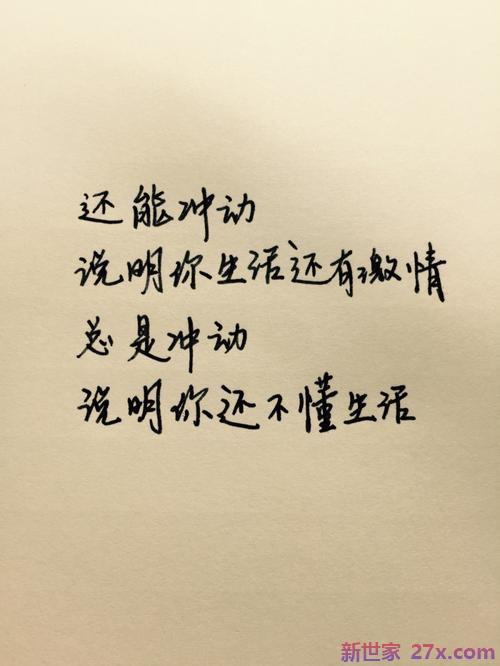 还能冲动
说明你生活还有激情
总是冲动
说明你还不懂生活
新世家 27x.com